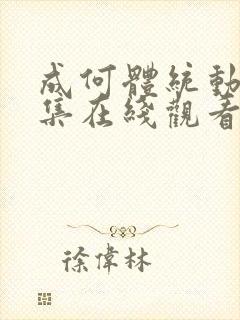 成何體統動
集在綫觀看
徐偉林